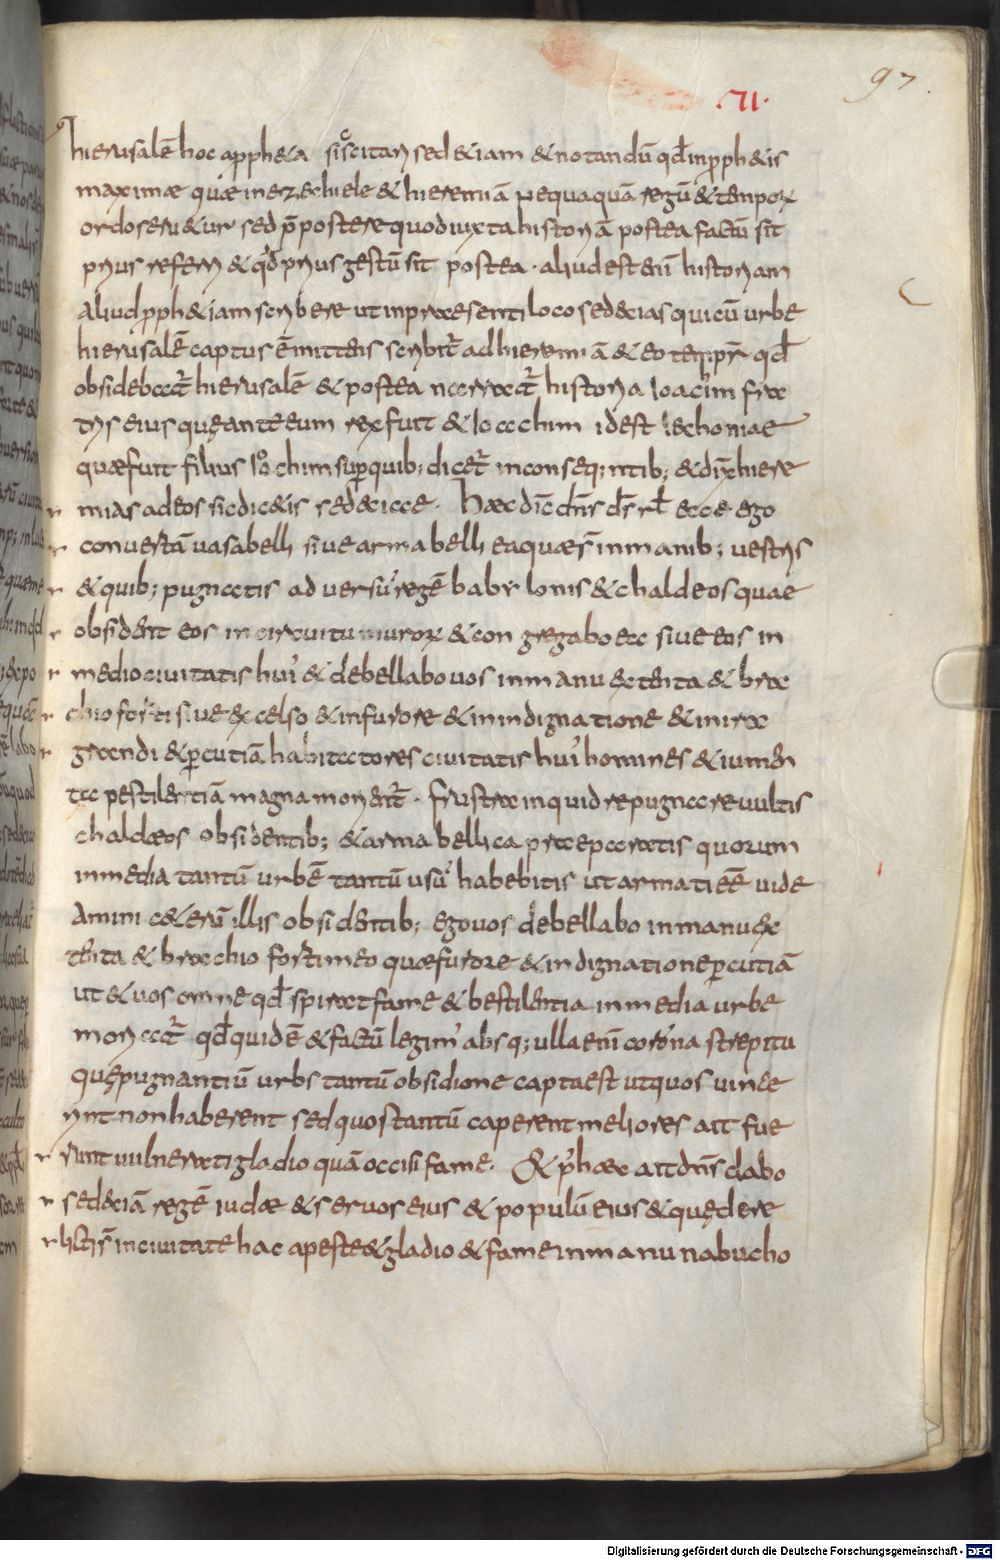 97
VI
hierusalē hoc appheta sciscitari sed &iam & notandū qđ in pph&is
maximæ quæ in ezechiele & hieremiā nequaquā regū & tempoꝝ
ordo seru&ur sed p̄postere quod iuxta historiā postea factū sit
prius referri & qđ prius gestū sit postea · aliud est enī historiam
aliud pph&iam scribere ut in præsenti loco sedecias qui cū urbe
hierusalē captus ē mittens scribit᷒ ad hieremiā & eo tempr̄ qđ
obsideba&᷒ hierusalē & postea narrat᷒ historia Ioacim fra
tris eius que ante eum rex fuit & Ioachim id est Iechoniae
quæ fuit filius Ioachim sup quib; dicet᷒ in conseq;ntib; & dix hiere
mias ad eos sic dic&is sedeciae · Hæc dic̄ dn̄s ds̄ isrł ecce ego
conuertā uasa belli siue arma belli ea quæ s̄ in manib; uestris
& quib; pugnatis aduersū regē babylonis & chaldeos quae
obsident eos in circuitu muroꝝ & congregabo ea siue eos in
medio ciuitatis hui᷒ & debellabo uos in manu extenta & bra
chio forti siue excelso & in furore & in indignatione & in ira
grandi & pcutiā habitatores ciuitatis hui᷒ homines & iumen
ta pestilentiā magna morient᷒ · frustra inquid repugnare uultis
chaldæos obsidentib; & arma bellica præparatis quorum
in media tantū urbē tantū usū habebitis ut armati eē uide
amini c&erū illis obsidentib; ego uos debellabo in manu ex
tenta & brachio forti meo quæ furore & indignatione pcutiā
ut & uos omne qđ spirat fame & bestilentia in media urbe
moria&᷒ qđ quidē & factū legim᷒ absq; ulla enī corona strepitu
que pugnantiū urbs tantū obsidione capta est ut quos uince
rint non haberent sed quos tantū caperent meliores ait fue
runt uulnerati gladio quā occisi fame · & p᷒ hæc ait dn̄s dabo
sedeciā regē iudæ & seruos eius & populū eius & quę dere
licti s̄ in ciuitate hac a peste & gladio & fame in manu nabucho
Digitalisierung gefördert durch die Deutsche Forschungsgemeinschaft - DFG